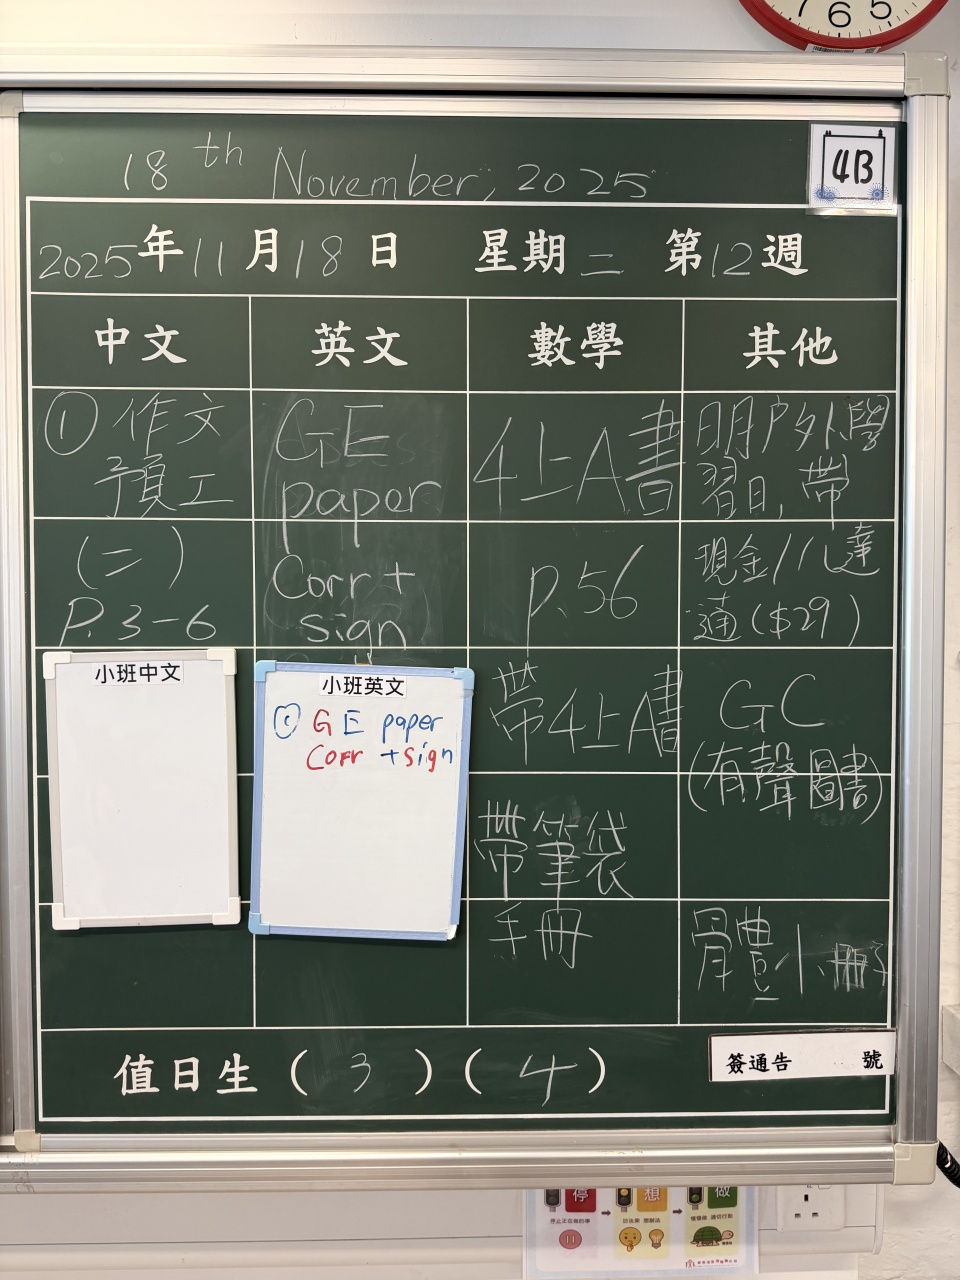 7 6 5
18th November, 2025
4B
2025年11月18日 星期二 第12週
中文 英文 數學 其他
① 作文
預工
(二)
P.3-6
小班中文
GE
paper
Corr +
sign
小班英文
① GE paper
Corr + sign
4上A書
P.56
帶4上A書
帶筆袋
手冊
明戶外學
習日,帶
現金/八達
通($29)
GC
(有聲圖書)
體小冊子
值日生 (3) (4)
簽通告 號
停 想 做
停止正在做的事